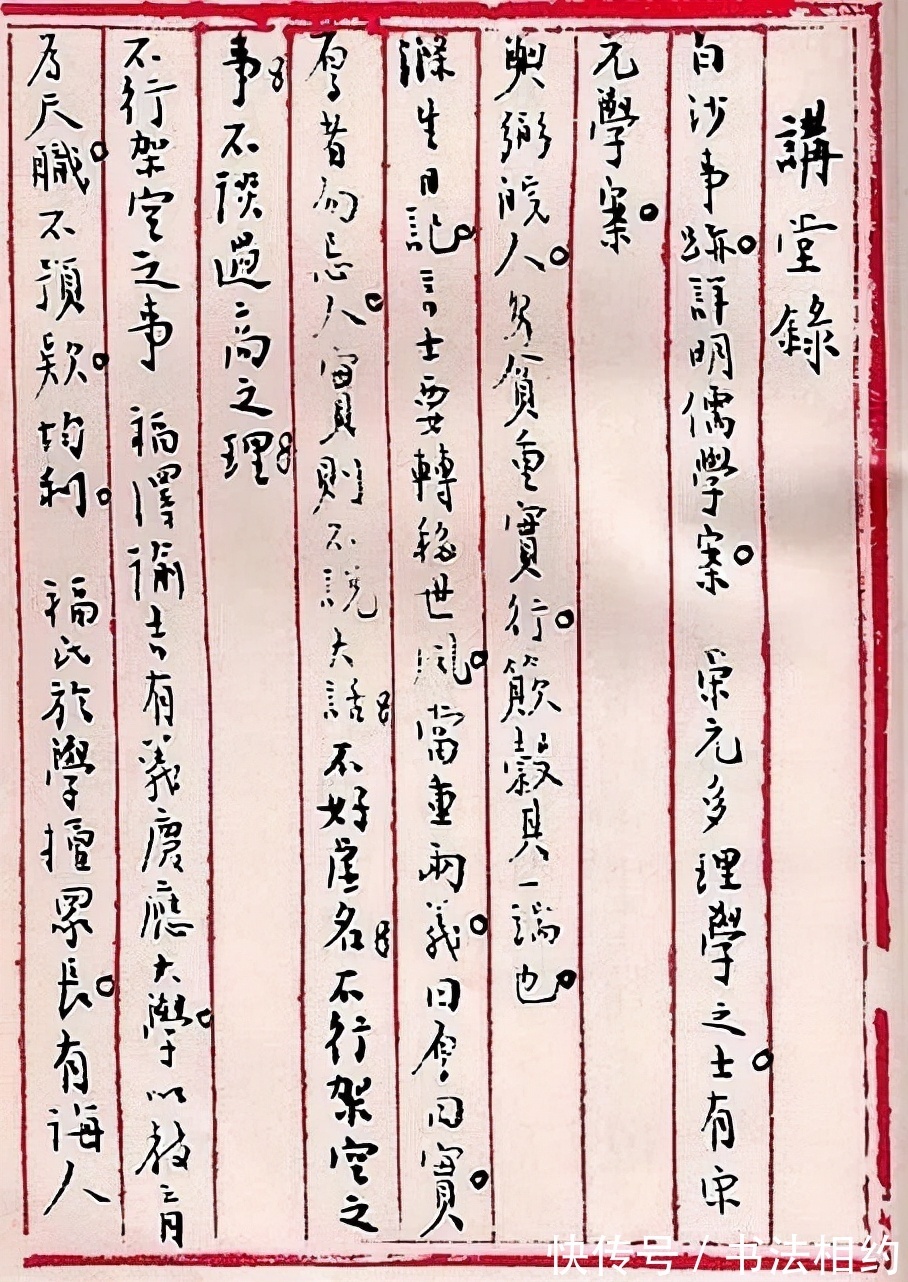 講堂錄
白沙事跡詳明儒學案 宋元多理學之士有宋
元學案
與弼皖人多貧重實行簸穀其一端也
滌生日記言士要轉移世風當重兩義曰厚曰實
厚者勿忌人實則不說大話不好虛名不行架空之
事不談過高之理
不行架空之事 福澤諭吉有義慶應大學以教育
為天職不預款均利 福氏於學擅眾長有誨人
快传号 / 书法相约